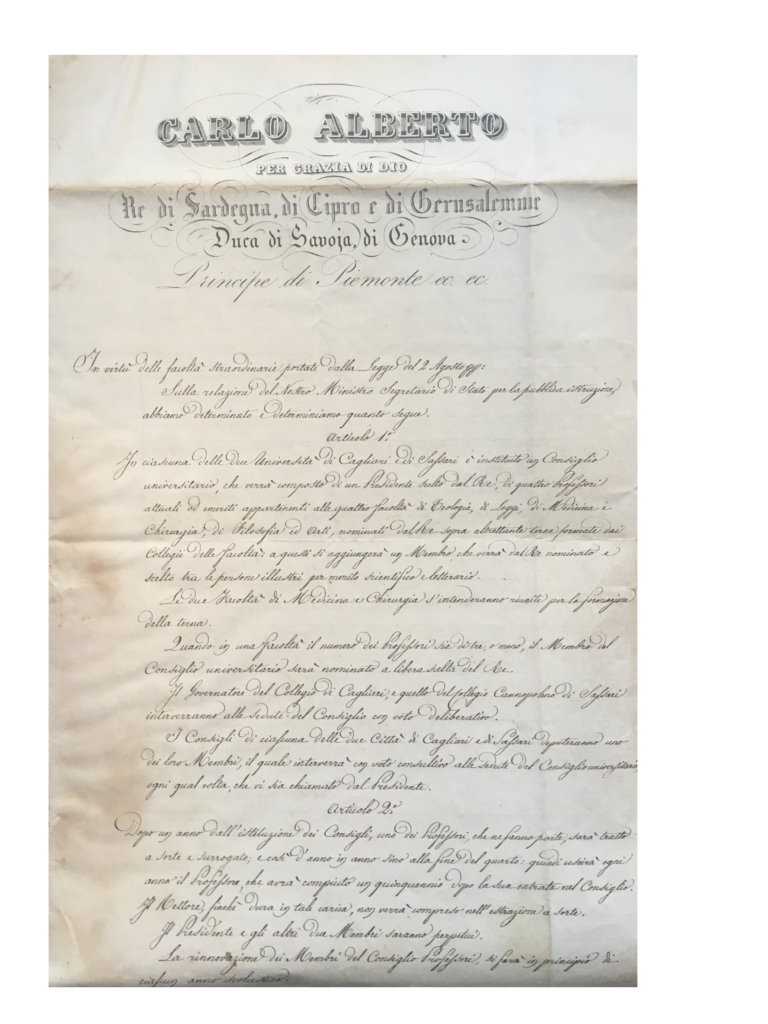 CARLO ALBERTO
PER GRAZIA DI DIO
Re di Sardegna, di Cipro e di Gerusalemme
Duca di Savoja, di Genova
Principe di Piemonte ec. ec.
In virtù delle facoltà straordinarie portate dalla Legge del 2 Agosto pp:
Sulla relazione del Nostro Ministro Segretario di Stato per la pubblica istruzione,
abbiamo determinato e determiniamo quanto segue.
Articolo 1.º
In ciascuna delle due Università di Cagliari e di Sassari è instituito un Consiglio
universitario, che verrà composto di un Presidente scelto dal Re, di quattro Professori
attuali od emeriti appartenenti alle quattro facoltà di Teologia, di Leggi, di Medicina e
Chirurgia, di Filosofia ed Arti, nominati dal Re sopra altrettante terne formate dai
Collegii delle Facoltà: a questi si aggiungerà un Membro, che verrà dal Re nominato e
scelto tra le persone illustri per merito scientifico e letterario.
Le due Facoltà di Medicina e Chirurgia s'intenderanno riunite per la formazione
della terna.
Quando in una facoltà il numero dei Professori sia di tre, o meno, il Membro del
Consiglio universitario sarà nominato a libera scelta del Re.
Il Governatore del Collegio di Cagliari, e quello del Collegio Cannopoleno di Sassari
interverranno alle sedute del Consiglio con voto deliberativo.
I Consigli di ciascuna delle due Città di Cagliari e di Sassari deputeranno uno
dei loro Membri, il quale interverrà con voto consultivo alle sedute del Consiglio universitario
ogni qual volta, che vi sia chiamato dal Presidente.
Articolo 2.º
Dopo un anno dall'istituzione dei Consigli, uno dei Professori, che ne fanno parte, sarà tratto
a sorte e surrogato; e così d'anno in anno sino alla fine del quarto: quindi uscirà ogni
anno il Professore, che avrà compiuto un quinquennio dopo la sua entrata nel Consiglio.
Il Rettore, finchè dura in tale carica, non verrà compreso nell'estrazione a sorte.
Il Presidente e gli altri due Membri saranno perpetui.
La rinnovazione dei Membri del Consiglio Professori, si farà in principio di
ciascun anno scolastico.